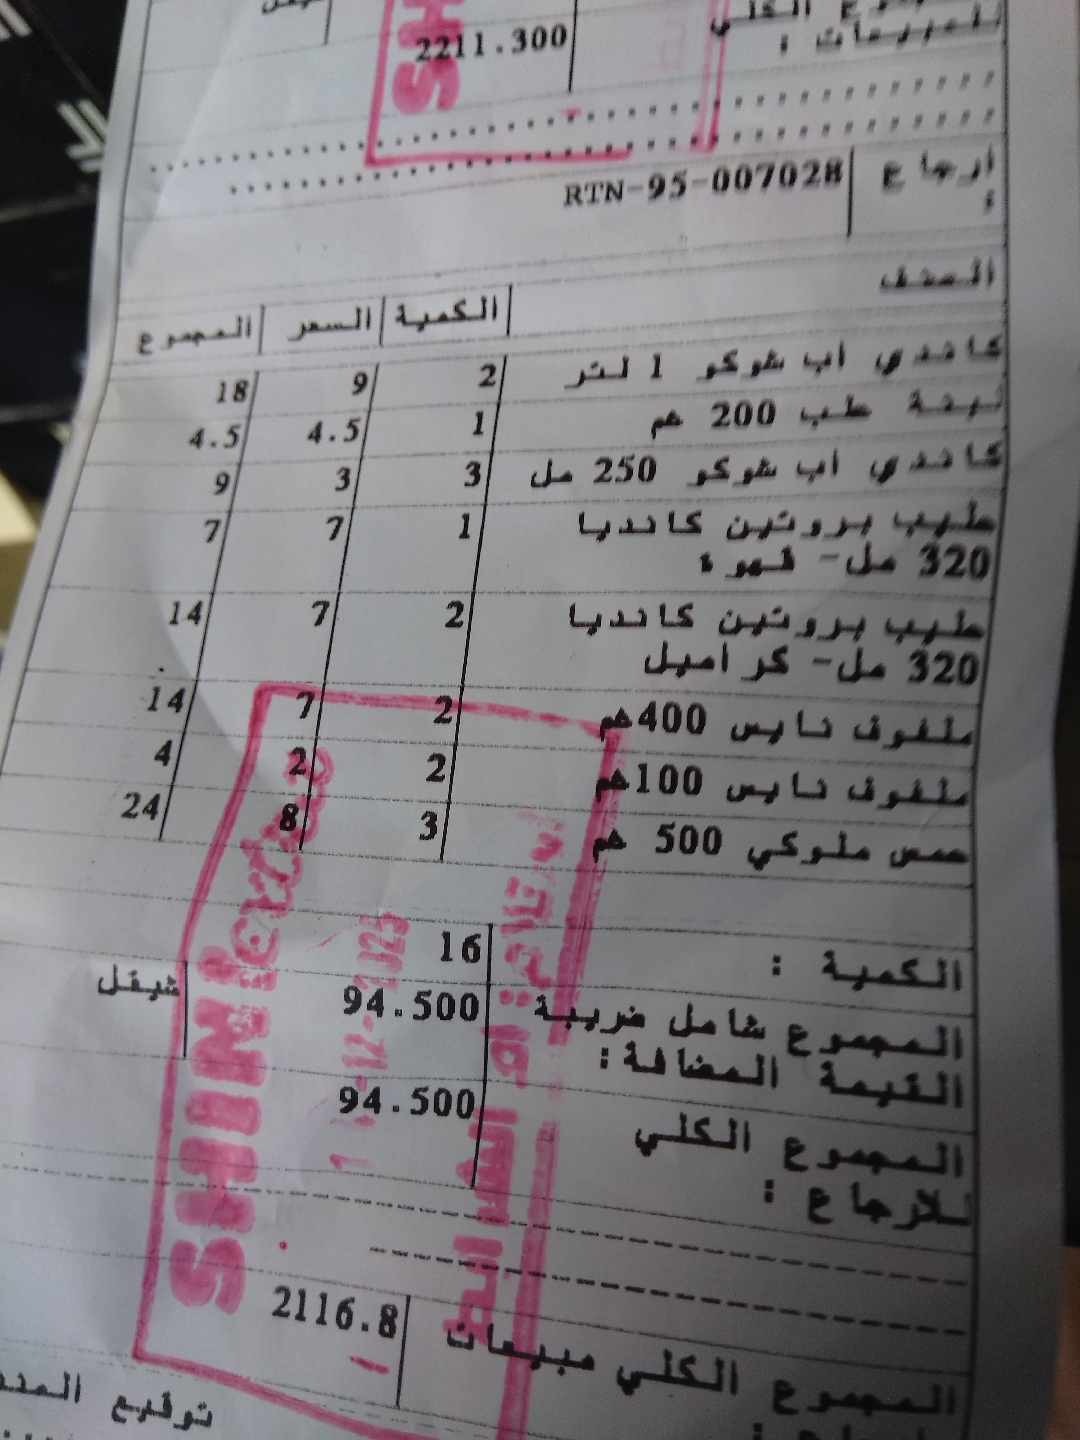 2211.300
للمبيعات :
ارجاع : RTN-95-007028
الصنف الكمية السعر المجموع
كاندي أب شوكو 1 لتر 2 9 18
لبنة طب 200 غم 1 4.5 4.5
كاندي أب شوكو 250 مل 3 3 9
حليب بروتين كانديا 1 7 7
320 مل- قهوة
حليب بروتين كانديا 2 7 14
320 مل- كراميل
ملفوف نايس 400غم 2 7 14
ملفوف نايس 100غم 2 2 4
حمص ملوكي 500 غم 3 8 24
الكمية : 16
المجموع شامل ضريبة 94.500 شيقل
القيمة المضافة:
المجموع الكلي 94.500
للارجاع :
المجموع الكلي مبيعات 2116.8
توقيع
SHINI